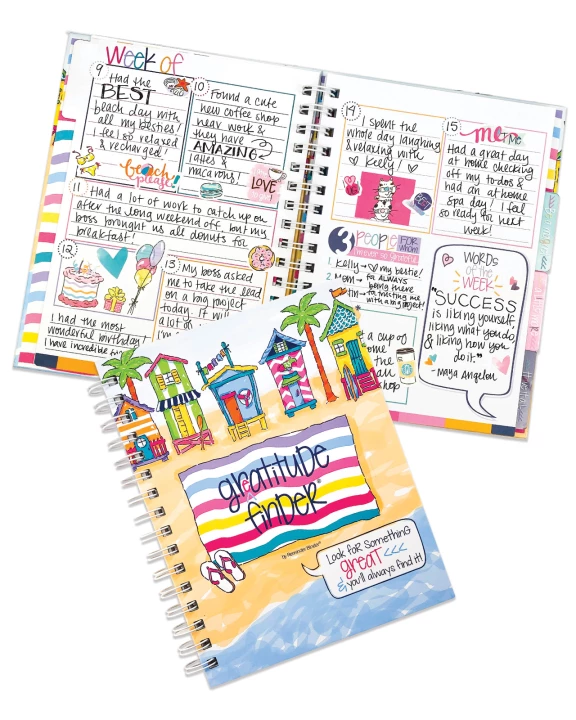 Week of
9 Had the
BEST
beach day with
all my besties!
I feel so relaxed
& recharged!
beach
please!
10 Found a cute
new coffee shop
near work &
they have
AMAZING
lattes &
macarons!
LOVE
11 Had a lot of work to catch up on
after the long weekend off, but my
boss brought us all donuts for
breakfast!
12
I had the most
wonderful birthday!
I have incredible
13 My boss asked
me to take the lead
on a big project
today. It will
a lot
14
I spent the
whole day laughing
& relaxing with
Kelly!
15
me TIME
Had a great day
at home checking
off my to-dos &
had an at home
spa day! I feel
so ready for next
week!
3 PEOPLE FOR WHOM
I'm ever so grateful
1. Kelly → my bestie!
2. Mom → for ALWAYS
being there
for trusting me
with a big project!
a cup of
shop
WORDS
of the
WEEK
"SUCCESS
is liking yourself,
liking what you do,
& liking how you
do it."
-Maya Angelou
gratitude
finder®
by Alexander Binder®
Look for something
great <<<
& you'll always find it!